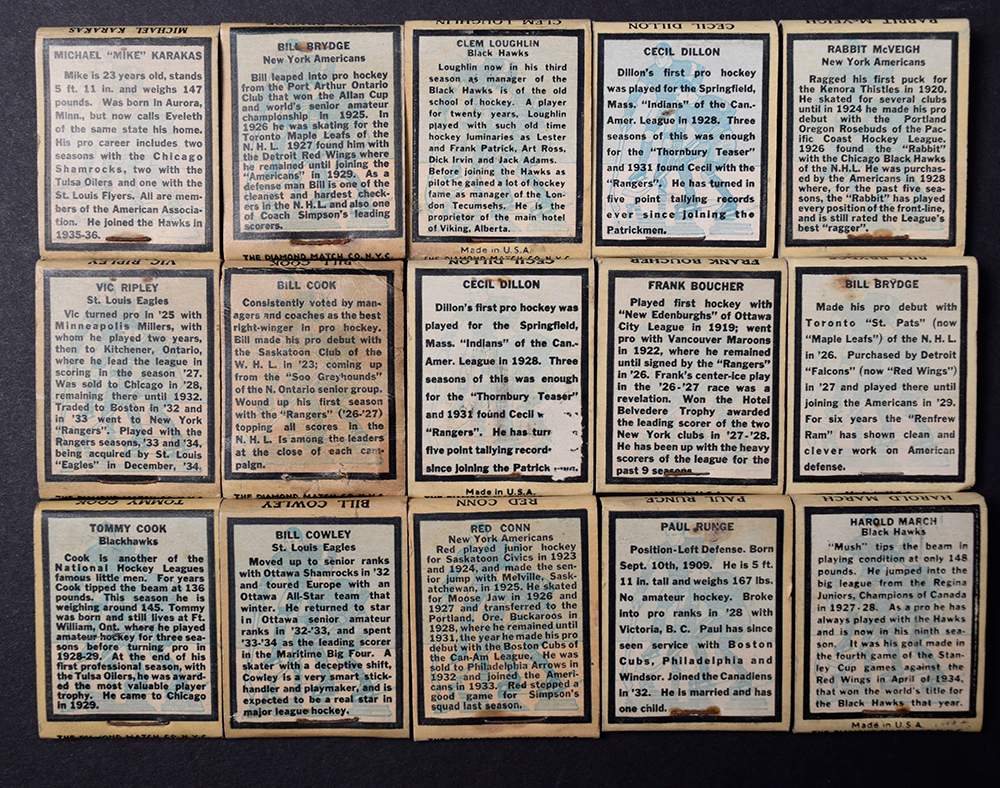 MICHAEL KARAKAS
MICHAEL "MIKE" KARAKAS
Mike is 23 years old, stands
5 ft. 11 in. and weighs 147
pounds. Was born in Aurora,
Minn., but now calls Eveleth
of the same state his home.
His pro career includes two
seasons with the Chicago
Shamrocks, two with the
Tulsa Oilers and one with the
St. Louis Flyers. All are mem-
bers of the American Associa-
tion. He joined the Hawks in
1935-36.
BILL BRYDGE
New York Americans
Bill leaped into pro hockey
from the Port Arthur Ontario
Club that won the Allan Cup
and world's senior amateur
championship in 1925. In
1926 he was skating for the
Toronto Maple Leafs of the
N. H. L. 1927 found him with
the Detroit Red Wings where
he remained until joining the
"Americans" in 1929. As a
defense man Bill is one of the
cleanest and hardest check-
ers in the N. H. L. and also one
of Coach Simpson's leading
scorers.
THE DIAMOND MATCH CO. N.Y.C.
CLEM LOUGHLIN
CLEM LOUGHLIN
Black Hawks
Loughlin now in his third
season as manager of the
Black Hawks is of the old
school of hockey. A player
for twenty years, Loughlin
played with such old time
hockey luminaries as Lester
and Frank Patrick, Art Ross,
Dick Irvin and Jack Adams.
Before joining the Hawks as
pilot he gained a lot of hockey
fame as manager of the Lon-
don Tecumsehs. He is the
proprietor of the main hotel
of Viking, Alberta.
Made in U.S.A.
CECIL DILLON
CECIL DILLON
Dillon's first pro hockey
was played for the Springfield,
Mass. "Indians" of the Can.-
Amer. League in 1928. Three
seasons of this was enough
for the "Thornbury Teaser"
and 1931 found Cecil with the
"Rangers". He has turned in
five point tallying records
ever since joining the
Patrickmen.
RABBIT McVEIGH
RABBIT McVEIGH
New York Americans
Ragged his first puck for
the Kenora Thistles in 1920.
He skated for several clubs
until in 1924 he made his pro
debut with the Portland
Oregon Rosebuds of the Pac-
ific Coast Hockey League.
1926 found the "Rabbit"
with the Chicago Black Hawks
of the N.H.L. He was purchas-
ed by the Americans in 1928
where, for the past five sea-
sons, the "Rabbit" has played
every position of the front-line,
and is still rated the League's
best "ragger".
VIC RIPLEY
VIC RIPLEY
St. Louis Eagles
Vic turned pro in '25 with
Minneapolis Millers, with
whom he played two years,
then to Kitchener, Ontario,
where he lead the league in
scoring in the season '27.
Was sold to Chicago in '28,
remaining there until 1932.
Traded to Boston in '32 and
in '33 went to New York
"Rangers". Played with the
Rangers seasons, '33 and '34,
being acquired by St. Louis
"Eagles" in December, '34.
BILL COOK
BILL COOK
Consistently voted by man-
agers and coaches as the best
right-winger in pro hockey.
Bill made his pro debut with
the Saskatoon Club of the
W. H. L. in '23; coming up
from the "Soo Greyhounds"
of the N. Ontario senior group.
Wound up his first season
with the "Rangers" ('26-'27)
topping all scores in the
N. H. L. Is among the leaders
at the close of each cam-
paign.
THE DIAMOND MATCH CO. N.Y.C.
CECIL DILLON
CECIL DILLON
Dillon's first pro hockey was
played for the Springfield,
Mass. "Indians" of the Can.-
Amer. League in 1928. Three
seasons of this was enough
for the "Thornbury Teaser"
and 1931 found Cecil w
"Rangers". He has turr
five point tallying record
since joining the Patrick
Made in U.S.A.
FRANK BOUCHER
FRANK BOUCHER
Played first hockey with
"New Edenburghs" of Ottawa
City League in 1919; went
pro with Vancouver Maroons
in 1922, where he remained
until signed by the "Rangers"
in '26. Frank's center-ice play
in the '26-'27 race was a
revelation. Won the Hotel
Belvedere Trophy awarded
the leading scorer of the two
New York clubs in '27-'28.
He has been up with the heavy
scorers of the league for the
past 9 seasons.
BILL BRYDGE
BILL BRYDGE
Made his pro debut with
Toronto "St. Pats" (now
"Maple Leafs") of the N. H. L.
in '26. Purchased by Detroit
"Falcons" (now "Red Wings")
in '27 and played there until
joining the Americans in '29.
For six years the "Renfrew
Ram" has shown clean and
clever work on American
defense.
TOMMY COOK
TOMMY COOK
Blackhawks
Cook is another of the
National Hockey Leagues
famous little men. For years
Cook tipped the beam at 136
pounds. This season he is
weighing around 145. Tommy
was born and still lives at Ft.
William, Ont. where he played
amateur hockey for three sea-
sons before turning pro in
1928-29. At the end of his
first professional season, with
the Tulsa Oilers, he was award-
ed the most valuable player
trophy. He came to Chicago
in 1929.
THE DIAMOND MATCH CO. N.Y.C.
BILL COWLEY
BILL COWLEY
St. Louis Eagles
Moved up to senior ranks
with Ottawa Shamrocks in '32
and toured Europe with an
Ottawa All-Star team that
winter. He returned to star
in Ottawa senior amateur
ranks in '32-'33, and spent
'33-'34 as the leading scorer
in the Maritime Big Four. A
skater with a deceptive shift,
Cowley is a very smart stick-
handler and playmaker, and is
expected to be a real star in
major league hockey.
RED CONN
RED CONN
New York Americans
Red played junior hockey
for Saskatoon Civics in 1923
and 1924, and made the sen-
ior jump with Melville, Sask-
atchewan, in 1925. He skated
for Moose Jaw in 1926 and
1927 and transferred to the
Portland, Ore. Buckaroos in
1928, where he remained until
1931, the year he made his pro
debut with the Boston Cubs of
the Can-Am League. He was
sold to Philadelphia Arrows in
1932 and joined the Ameri-
cans in 1933. Red stepped a
good game for Simpson's
squad last season.
PAUL RUNGE
PAUL RUNGE
Position-Left Defense. Born
Sept. 10th, 1909. He is 5 ft.
11 in. tall and weighs 167 lbs.
No amateur hockey. Broke
into pro ranks in '28 with
Victoria, B. C. Paul has since
seen service with Boston
Cubs, Philadelphia and
Windsor. Joined the Canadiens
in '32. He is married and has
one child.
HAROLD MARCH
HAROLD MARCH
Black Hawks
"Mush" tips the beam in
playing condition at only 148
pounds. He jumped into the
big league from the Regina
Juniors, Champions of Canada
in 1927-28. As a pro he has
always played with the Hawks
and is now in his ninth sea-
son. It was his goal made in
the fourth game of the Stan-
ley Cup games against the
Red Wings in April of 1934,
that won the world's title for
the Black Hawks that year.
Made in U.S.A.